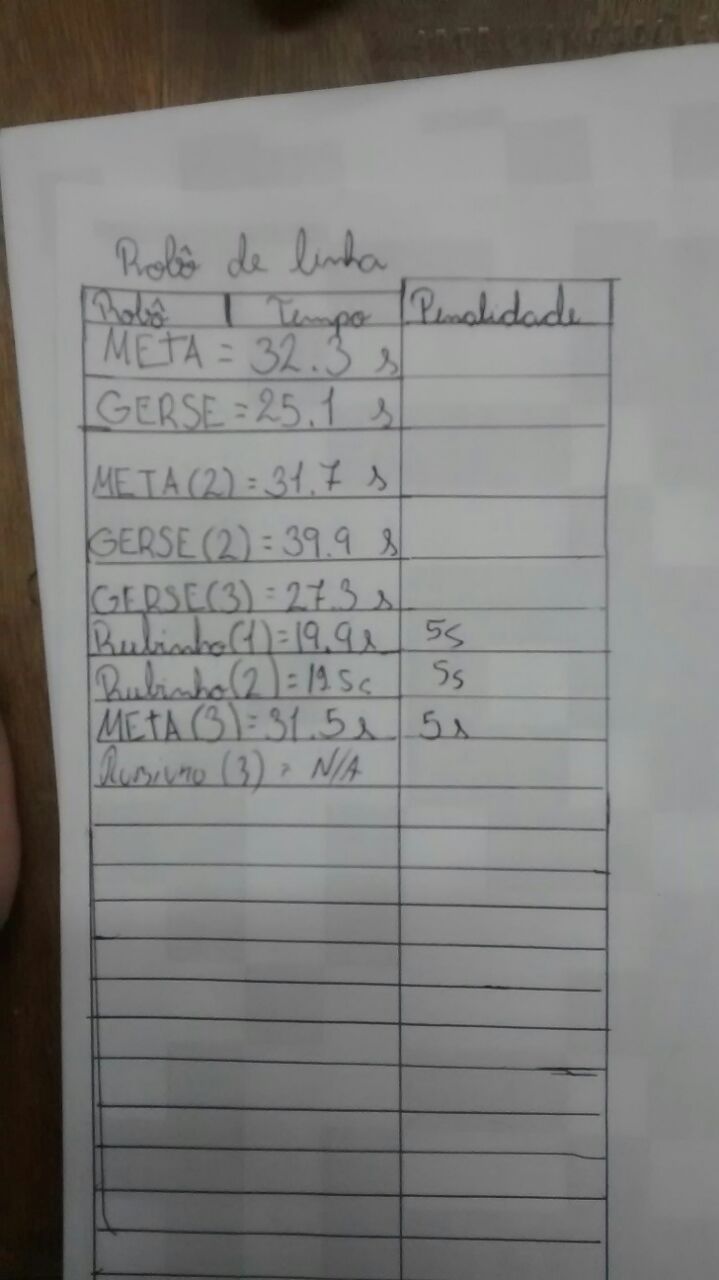 Robô de linha
Robô Tempo Penalidade
META = 32.3 s
GERSE = 25.1 s
META(2) = 31.7 s
GERSE(2) = 39.9 s
GERSE(3) = 27.3 s
Rubinho(1) = 19.9s 5s
Rubinho(2) = 5s
META(3) = 31.5s 5s
(3) = N/A